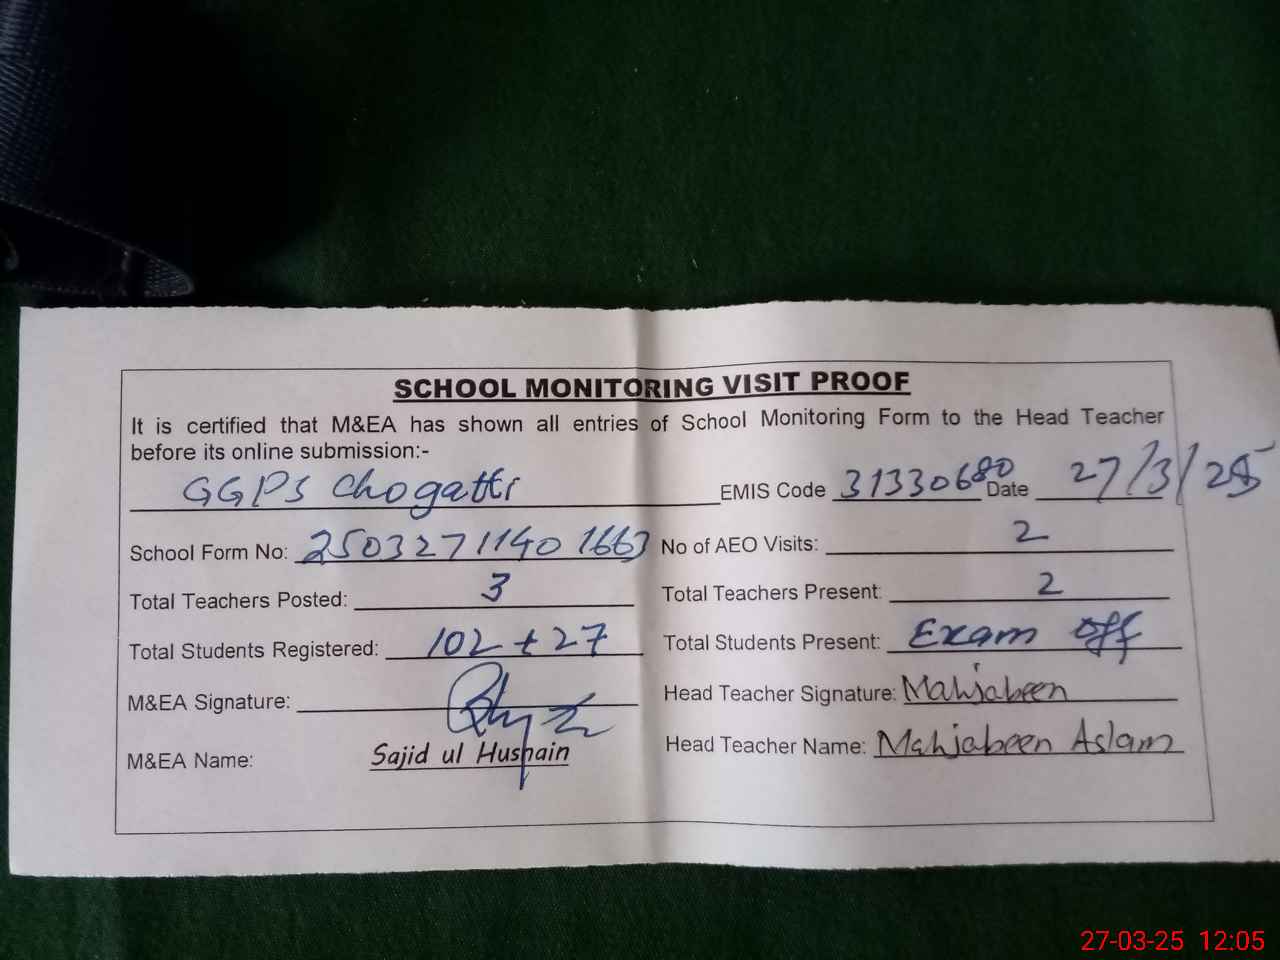 SCHOOL MONITORING VISIT PROOF
It is certified that M&EA has shown all entries of School Monitoring Form to the Head Teacher
before its online submission:-
GGPS Chogatti EMIS Code 31330680 Date 27/3/25
School Form No: 25032711401663 No of AEO Visits: 2
Total Teachers Posted: 3 Total Teachers Present: 2
Total Students Registered: 102 + 27 Total Students Present: Exam off
M&EA Signature: Head Teacher Signature: Mahjabeen
M&EA Name: Sajid ul Husnain Head Teacher Name: Mahjabeen Aslam
27-03-25 12:05